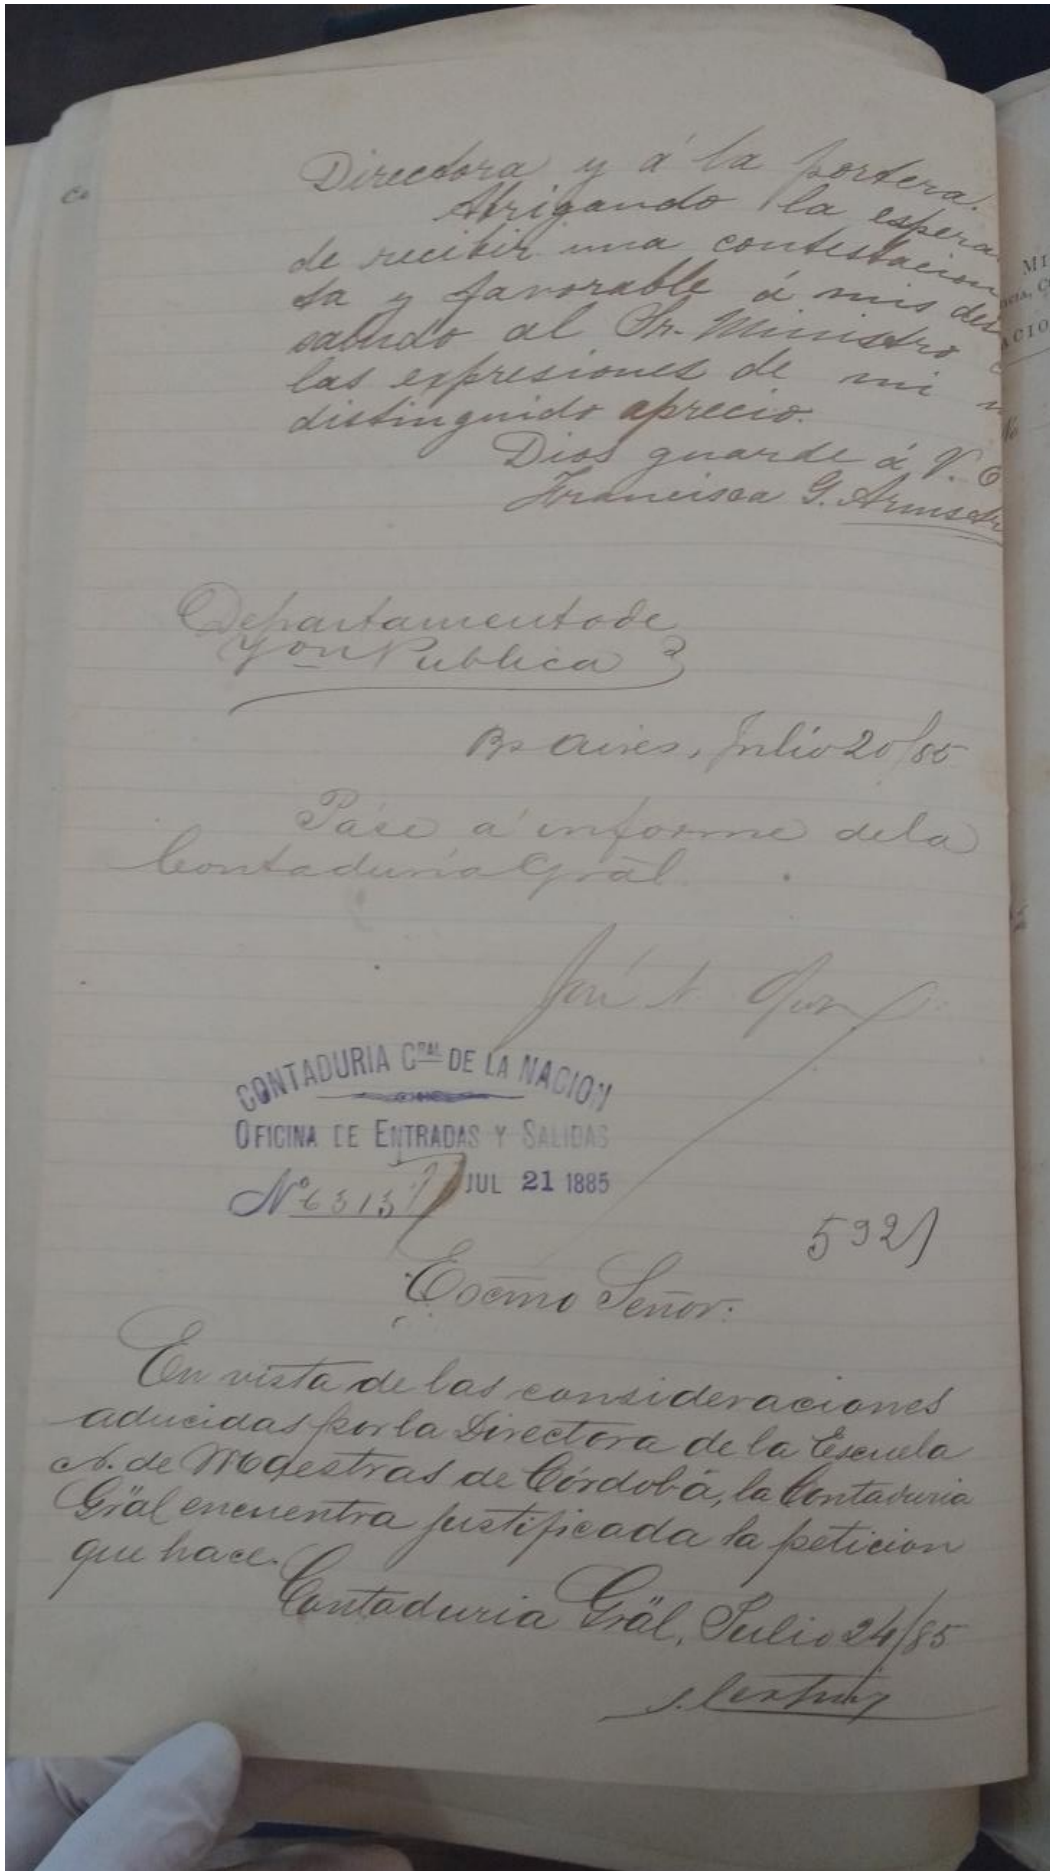 Directora y á la portera.
Abrigando la espera
de recibir una contestacion
ta y favorable á mis des
saludo al Sr. Ministro c
las expresiones de mi m
distinguido aprecio.
Dios guarde á V. E
Francisca G. Armstr
Departamento de
Yon Publica
Bs Aires, Julio 20/85
Pase á informe de la
Contaduria Gräl.
José N.
CONTADURIA GRAL DE LA NACION
OFICINA DE ENTRADAS Y SALIDAS
No 6313 JUL 21 1885
5921
Escmo Señor:
En vista de las consideraciones
aducidas por la Directora de la Escuela
N. de Maestras de Córdoba, la Contaduria
Gräl encuentra justificada la peticion
que hace.
Contaduria Gräl, Julio 24/85
Co
MI
CIO
No